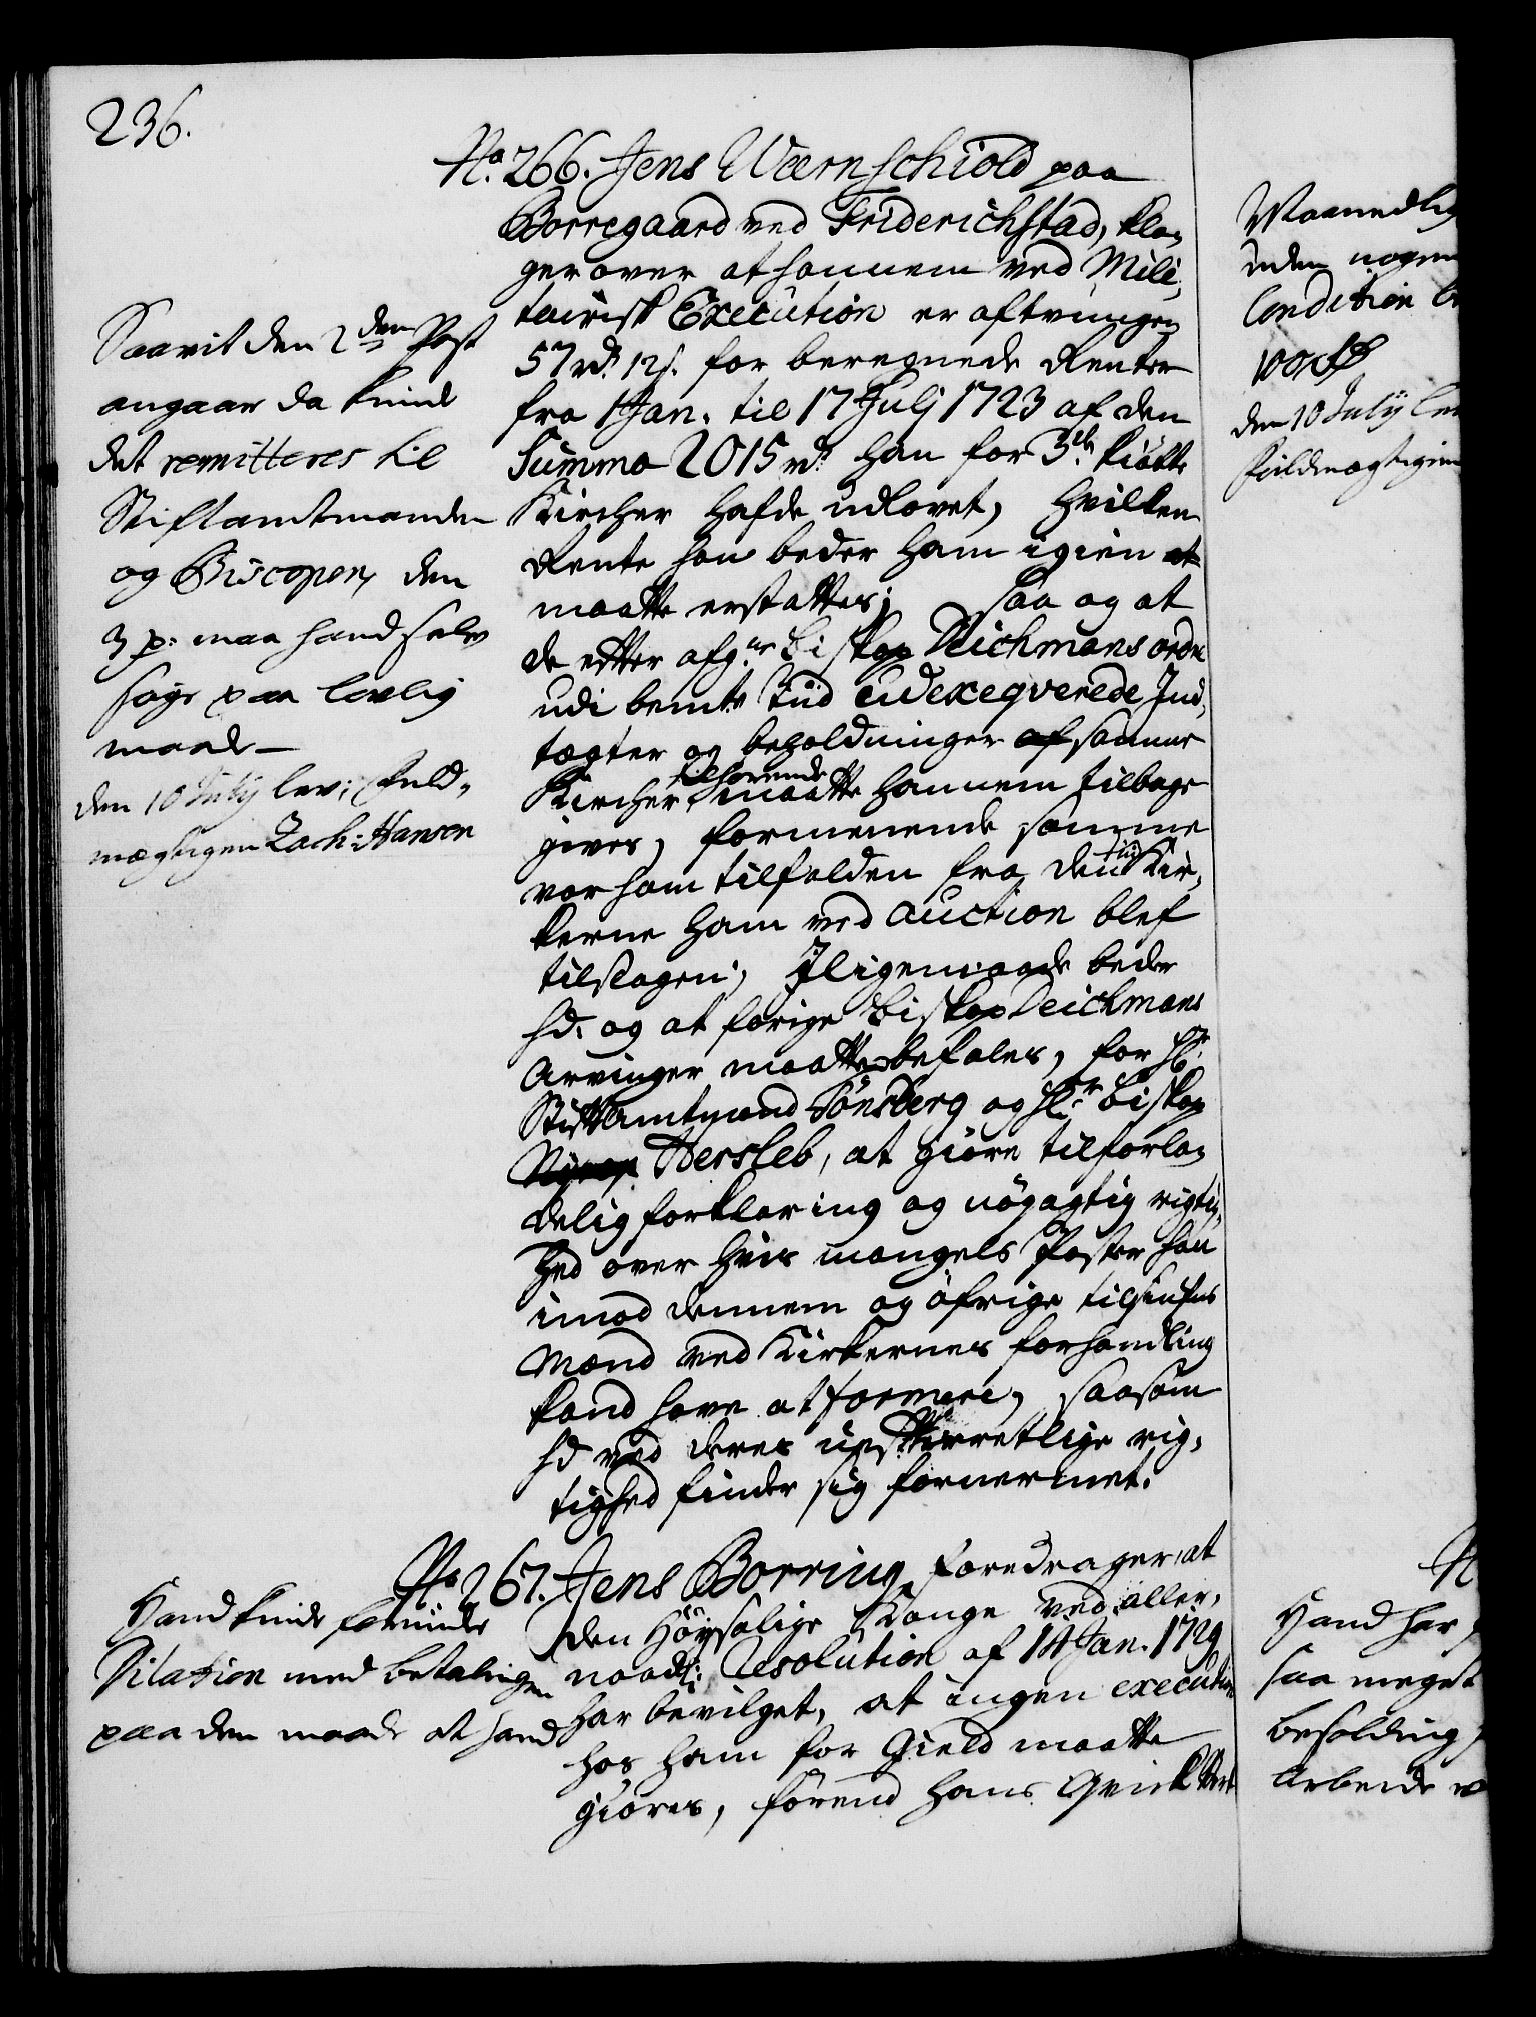 236.
No. 266. Jens Wærnschiold paa
Borregaard ved Friderichstad, kla-
ger over at hannem ved Mili-
tairisk Execution er aftvungen
57 rd. 12 s. for beregnede Renter
fra 1 Jan. til 17 Julj 1723 af den
Summa 2015 rd. han for 3de kiøbte
Kircher hafde udlovet, hvilken
Rente han beder ham igien at
maatte erstattes; saa og at
de efter afg. Biskop Deichmans ordre
udi bemte Tiid udexeqverede Ind-
tægter og beholdninger af samme
Kircher tilhørende maatte hannem tilbage
gives, formenende samme
var ham tilfalden fra den tid Kir-
kerne ham ved auction blef
tilslagen; Iligemaade beder
hd. og at forige Biskop Deichmans
Arvinger maatte befales, for Hr.
Stiftamtmand Tønsberg og Hr. Biskop
Hersleb, at giøre tilforla-
delig forklaring og nøyagtig rigtig-
hed over hvis mangels Poster han
imod dennem og øfrige tilsiufns
Mænd ved Kirkernes forhandling
kand have at formere, saasom
hd ved deres uefterretlige rig-
tighed finder sig fornermet.
Saavit den 2den Post
angaar da kunde
det remitteres til
Stiftamtmanden
og Biscopen, den
3 p: maa hand selv
søge paa lovlig
maade
den 10 July lev: Fuld-
mægtigen Zach: Hansen
No. 267. Jens Borring foredrager, at
den Høysalige Konge ved aller-
naadl: Resolution af 14 Jan. 1729
har bevilget, at ingen execution
hos ham for Gield maatte
giøres, førend hans Qvick
Hand kunde forunde
Dilation med betalingen
paa den maade at hand
Maanedlig
uden nogen
Condition
den 10 July
fuldmægtigen
Hand har
saa meget
besolding
Arbeide